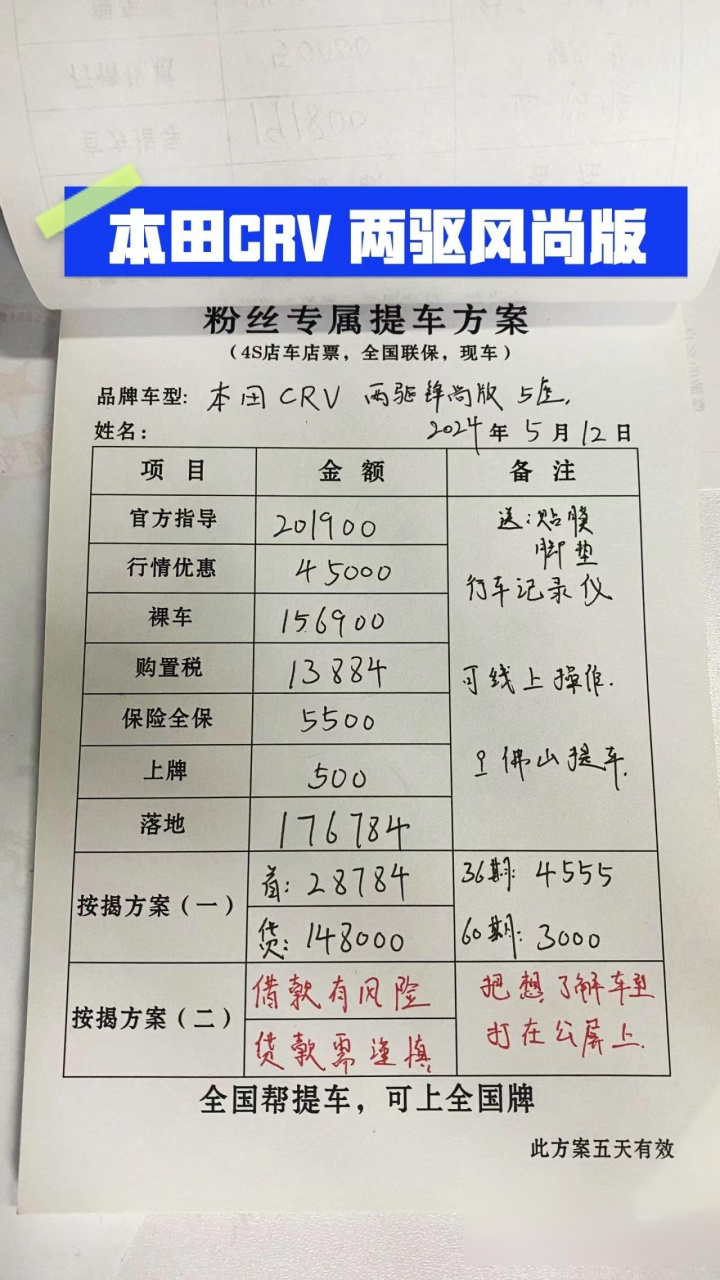 本田CRV 两驱风尚版
粉丝专属提车方案
（4S店车店票，全国联保，现车）
品牌车型: 本田CRV 两驱锋尚版 5座.
姓名: 2024年5月12日
项目 金额 备注
官方指导 201900 送:贴膜
脚垫
行情优惠 45000 行车记录仪
裸车 156900
购置税 13884 可线上操作.
保险全保 5500
上牌 500 佛山提车.
落地 176784
按揭方案（一） 首: 28784 36期: 4555
贷: 148000 60期: 3000
按揭方案（二） 借款有风险 把想了解车型
贷款需谨慎 打在公屏上.
全国帮提车，可上全国牌
此方案五天有效